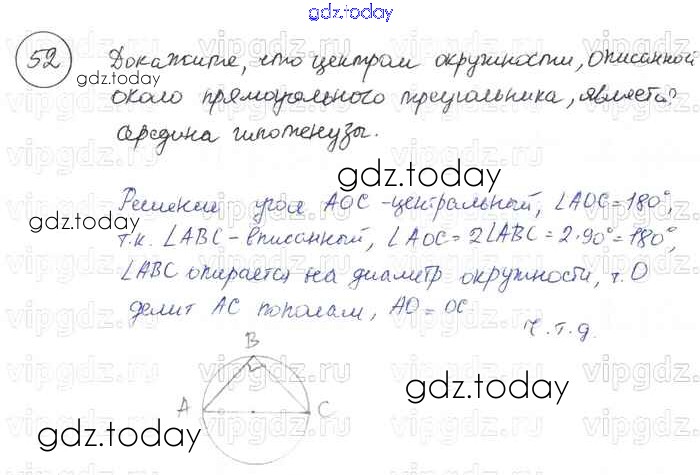 gdz.today
52 Докажите, что центром окружности, описанной
gdz.today
около прямоугольного треугольника, является
середина гипотенузы.
gdz.today
Решение угол AOC - центральный, ∠AOC = 180°,
gdz.today
т.к. ∠ABC - вписанный, ∠AOC = 2∠ABC = 2·90° = 180°,
∠ABC опирается на диаметр окружности, т. O
делит AC пополам, AO = OC
ч.т.д.
B
A C
gdz.today
gdz.today
vipgdz.ru